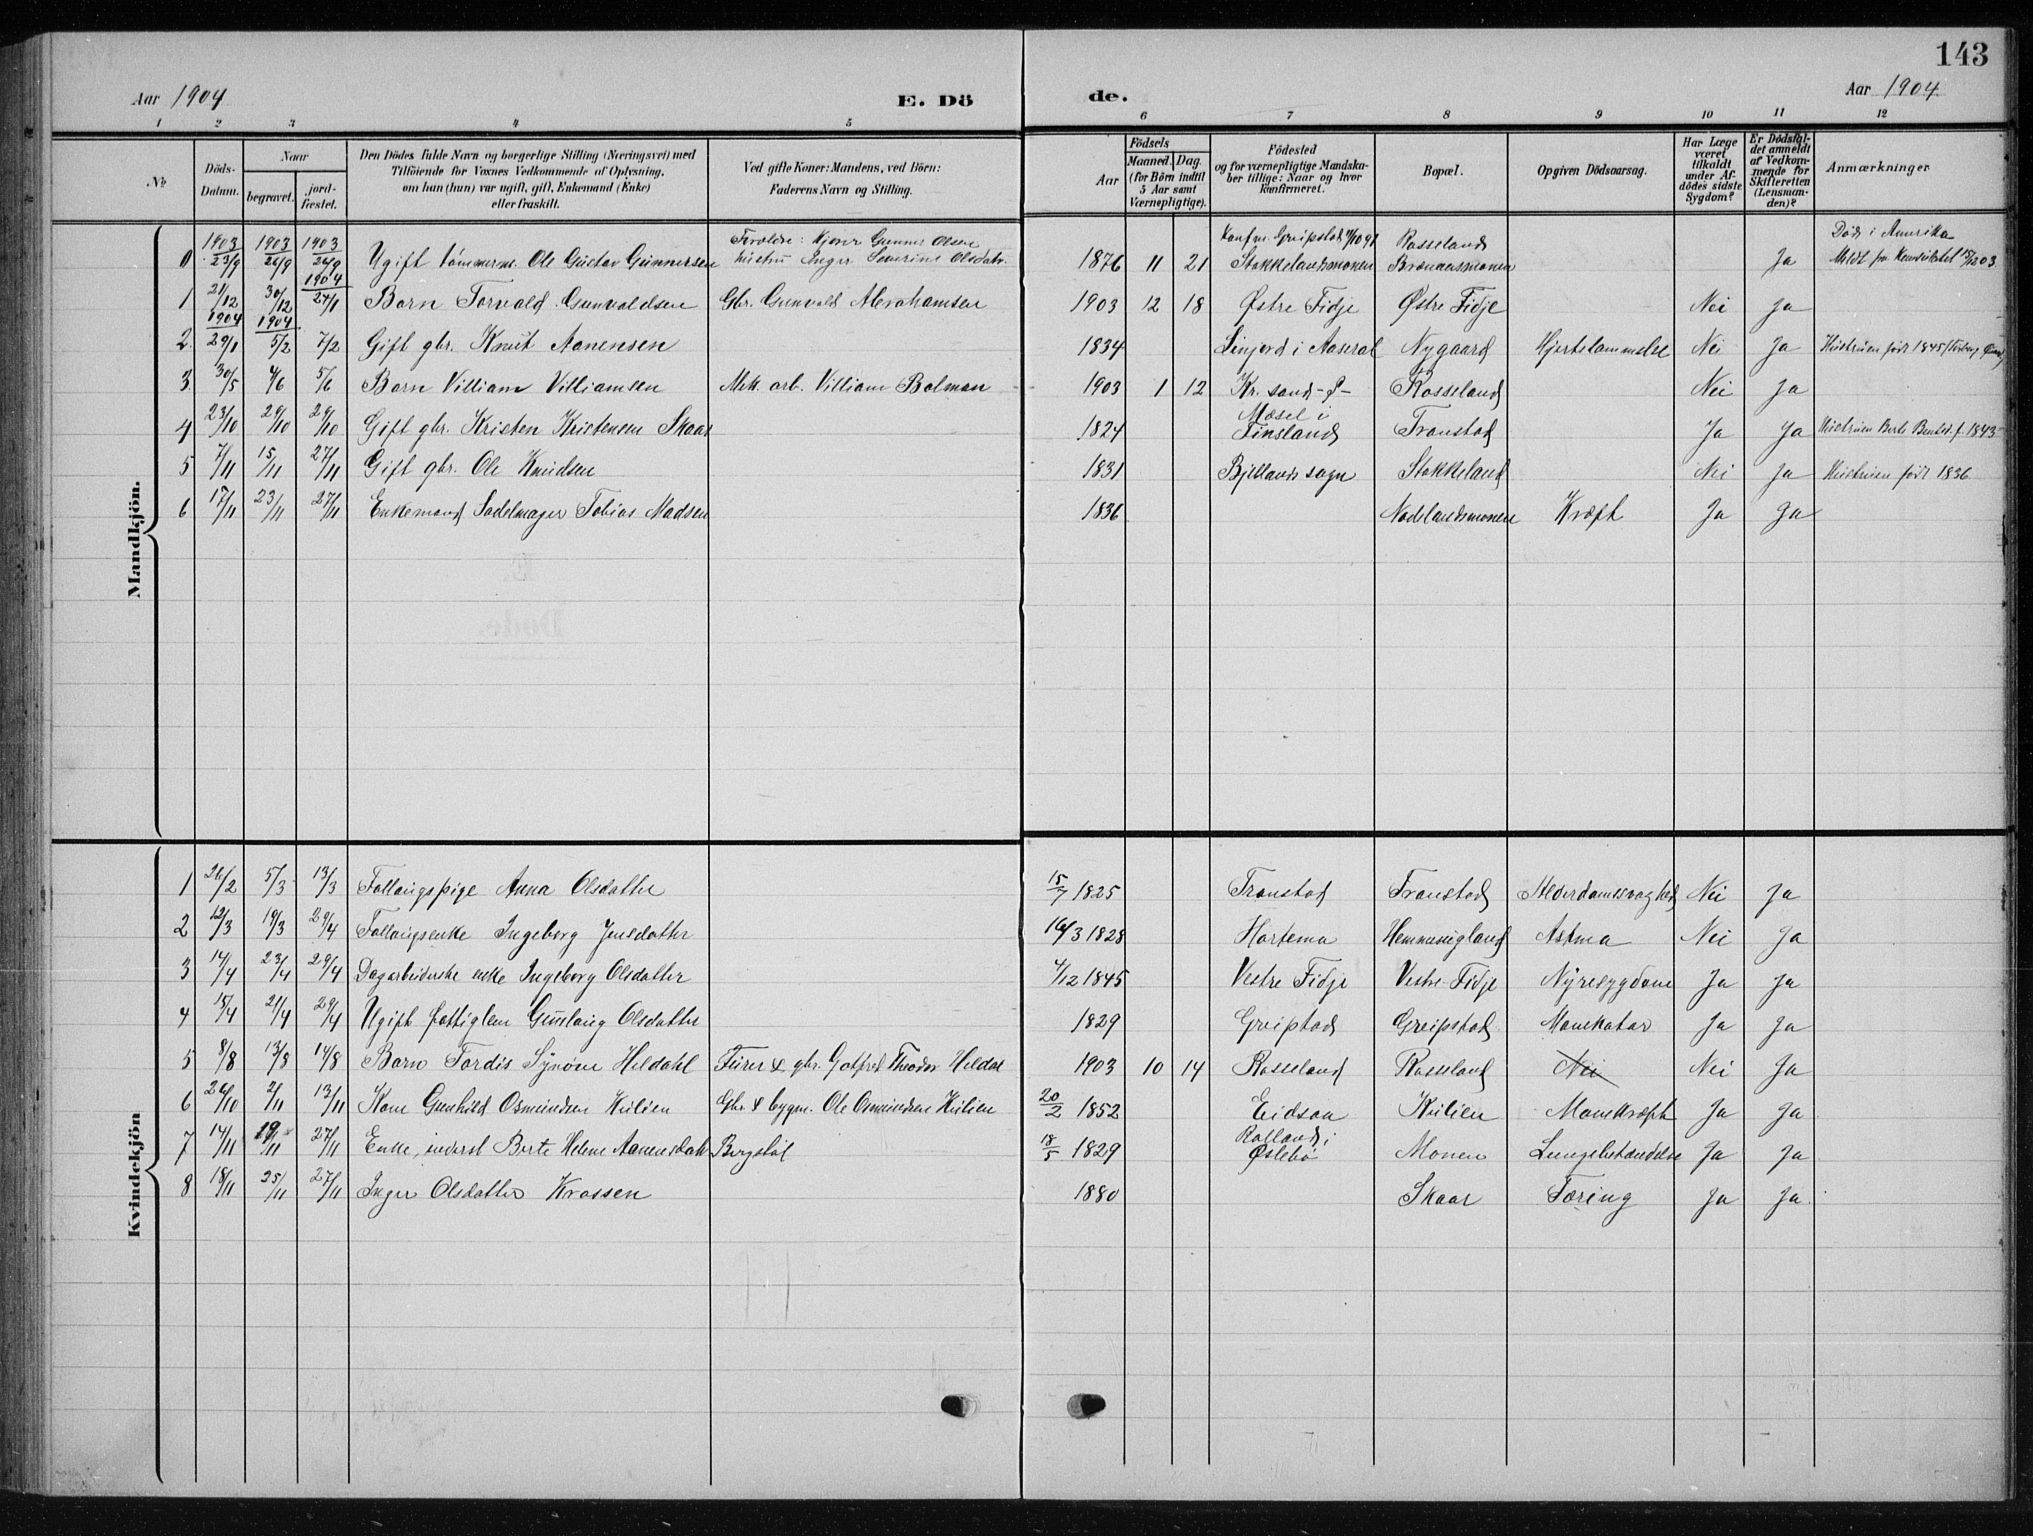 143
Aar 1904
E. Dö
de.
Aar 1904.
1 2 3 4 5 6 7 8 9 10 11 12
№
Döds-
Datum.
Naar
begravet.
jord-
fæstet.
Den Dödes fulde Navn og borgerlige Stilling (Næringsvei) med
Tilföiende for Voxnes Vedkommende af Oplysning,
om han (hun) var ugift, gift, Enkemand (Enke)
eller fraskilt.
Ved gifte Koner: Mandens, ved Börn:
Faderens Navn og Stilling.
Födsels
Aar
Maaned. Dag.
(for Börn indtil
5 Aar samt
Værnepligtige).
Födested
og for værnepligtige Mandska-
ber tillige: Naar og hvor
konfirmeret.
Bopæl.
Opgiven Dödsaarsag.
Har Læge
været
tilkaldt
under Af-
dödes sidste
Sygdom?
Er Dödsfal-
det anmeldt
af Vedkom-
mende for
Skifteretten
(Lensman-
den)?
Anmærkninger
Mandkjön.
0 1903 23/9 1903 24/9 1903 24/9 Ugift tömmerm. Ole Gustav Gunnersen Forældre: Gunner Olsen hustru Inger Severine Olsdatr. 1876 11 21 Konf. Greipstad 4/10 91 Stokkelandsmonen Rosseland Ja Död i Amerika
1 21/12 30/12 1904 24/1 Barn Torvald Gunvaldsen Gbr. Gunvald Abrahamsen 1903 12 18 Østre Fidje Østre Fidje Nei Ja
2 1904 29/1 1904 5/2 7/2 Gift gbr. Knut Aanensen 1834 Linjord i Aaseral Nygaard Hjertelammelse Nei Ja Hustruen född 1845
3 30/5 4/6 5/6 Barn Villiam Villiamsen Mek. arb. Villiam Bolman 1903 1 12 Kr. sand Rosseland Nei Ja
4 23/10 29/10 29/10 Gift gbr. Kristen Kristensen Skaar 1824 Mæsel i Finsland Tronstad Ja Ja Hustruen Berte f. 1843
5 7/11 15/11 27/11 Gift gbr. Ole Knudsen 1831 Bjellands sogn Stokkeland Nei Ja Hustruen född 1836
6 17/11 23/11 27/11 Enkemand Sadelmager Tobias Madsen 1836 Nodelandsmonen Kræft Ja Ja
Kvindekjön
1 26/2 5/3 13/3 Follaugspige Anna Olsdatter 15/7 1825 Tronstad Tronstad Alderdomssvaghed Nei Ja
2 12/3 19/3 29/4 Follaugsenke Ingeborg Jensdatter 16/3 1828 Hortema Hemmesigland Astma Nei Ja
3 14/4 23/4 29/4 Dagarbeiderske enke Ingeborg Olsdatter 4/12 1845 Vestre Fidje Vestre Fidje Nyresygdom Ja Ja
4 15/4 21/4 29/4 Ugift fattiglem Gunlaug Olsdatter 1829 Greipstad Greipstad Mavekatar Ja Ja
5 8/8 13/8 14/8 Barn Tordis Synöve Heldahl Furer & gbr. Gotfred Theodor Heldal 1903 10 14 Rosseland Rosseland Nei Nei Ja
6 26/10 2/11 13/11 Kone Gunhild Osmundsen Kulien Gbr & bygm. Ole Osmundsen Kulien 20/2 1852 Eidsaa Kulien Mavekræft Ja Ja
7 14/11 19/11 27/11 Enke, inderst Berte Helene Aanensdatr Bergstöl 18/5 1829 Rolland i Øslebö Monen Lungebetændelse Ja Ja
8 18/11 25/11 27/11 Inger Olsdatter Krossen 1880 Skaar Tæring Ja Ja.